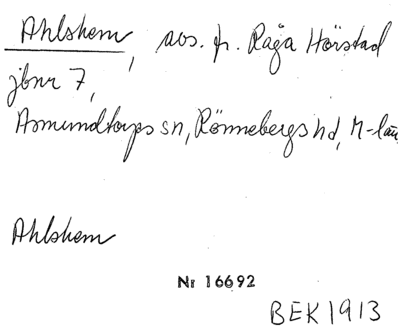 Ahlshem, avs. fr. Råga Hörstad
jbnr 7,
Asmundtorps sn, Rönnebergs hd, M-län
Ahlshem
Nr 16692
BEK 1913